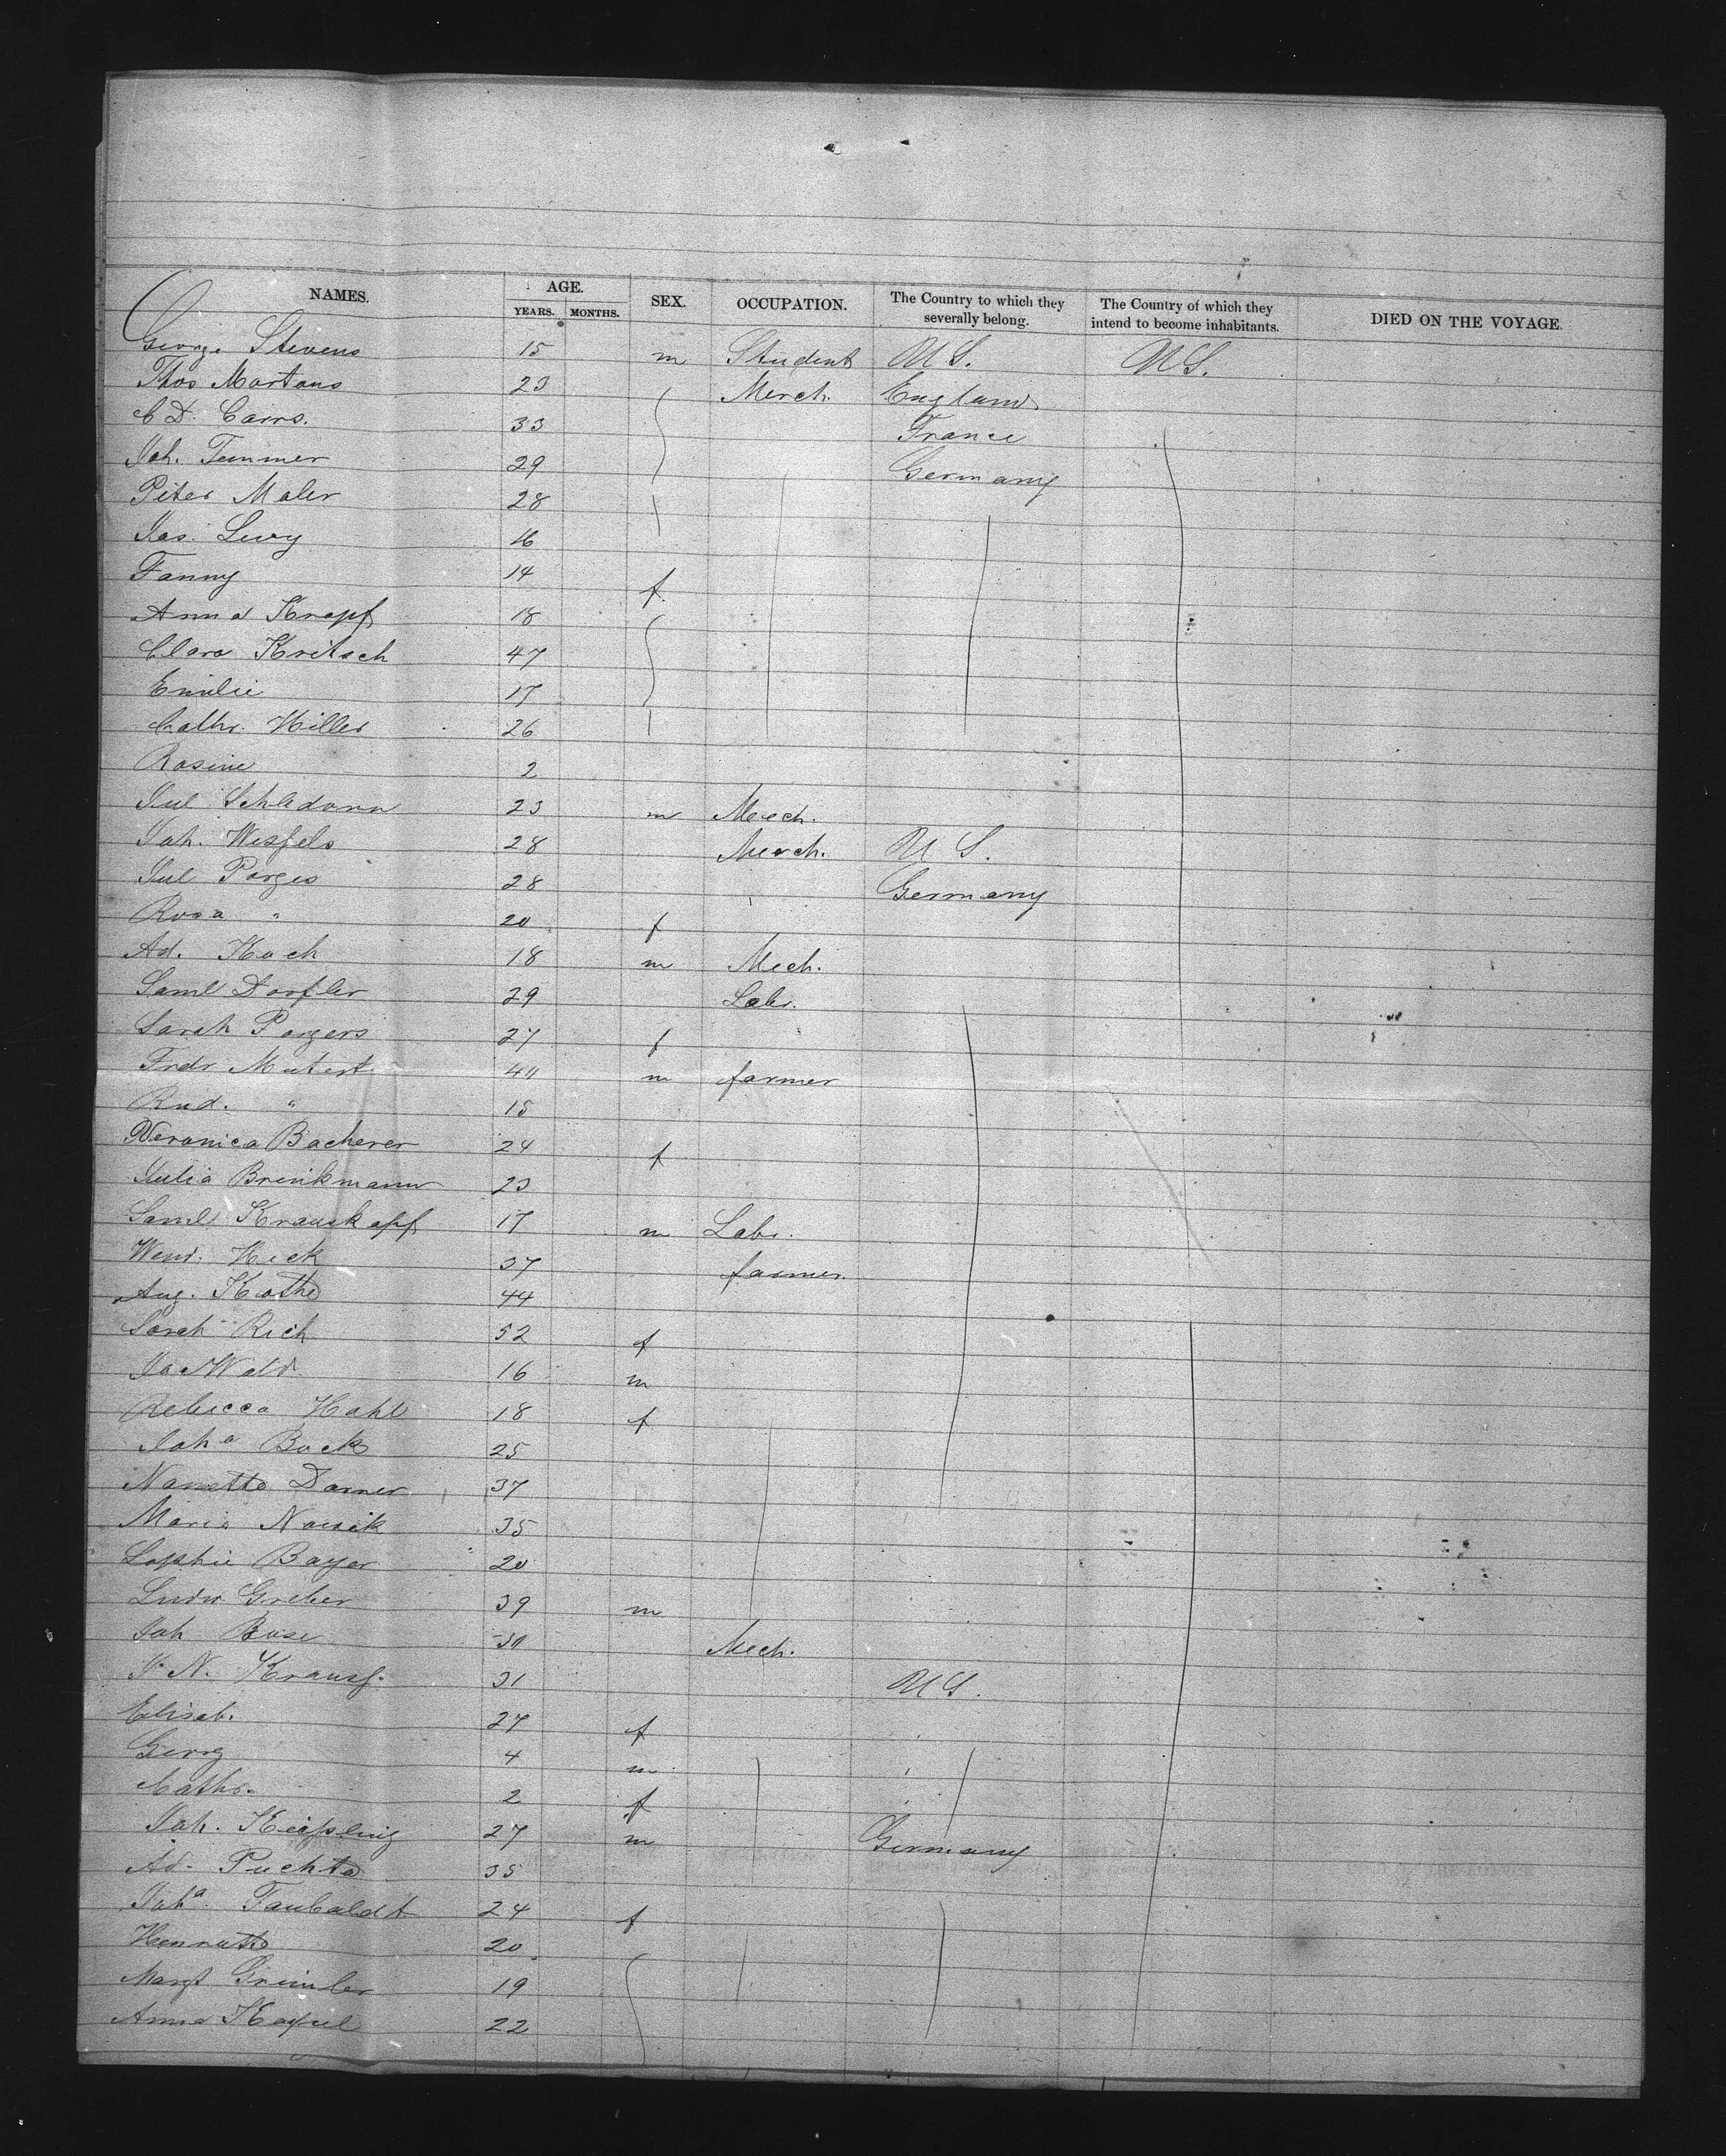 NAMES. AGE. SEX. OCCUPATION. The Country to which they severally belong. The Country of which they intend to become inhabitants. DIED ON THE VOYAGE.
YEARS. MONTHS.
George Stevens 15 m Student U S. U S.
Thos Martans 23 Merch. England
C D. Cairs. 33 France
Joh. Temmer 29 Germany
Peter Maler 28
Jas. Levy 16
Fanny 14 f.
Anna Krapf 18
Clara Kritsch 47
Emilie 17
Cathr. Hiller 26
Rosine 2
Jul 23 m Mech.
Joh. Wessels 28 Merch. U S.
Jul Porges 28 Germany
Rosa " 20 f
Ad. Koch 18 m Mech.
Saml Dorfler 29 Labr.
Sarah Porgers 27 f
Fredr Mutert 40 m farmer
Rud. " 15
Veronica Bacherer 24 f
Julia Brinkmann 23
Saml Krauskopf 17 m Labr.
Wend. Heck 37 farmer.
Aug. Kothe 44
Sarah Rich 52 f
Wald 16 m
Rebecca Hahl 18 f
Joha Bock 25
Nanette Darner 37
Maria Nowak 35
Sophie Bayer 20
Ludw Greber 39 m
Joh Bose 30 Mech.
N. Krauss. 31 U S.
Elisab. 27 f
Georg 4 m
Cathr. 2 f
Joh. Keissling 27 m Germany
Ad. Puchta 35
Joha. Faubaldt 24 f
Henriette 20
Margt Grimler 19
Anna 22